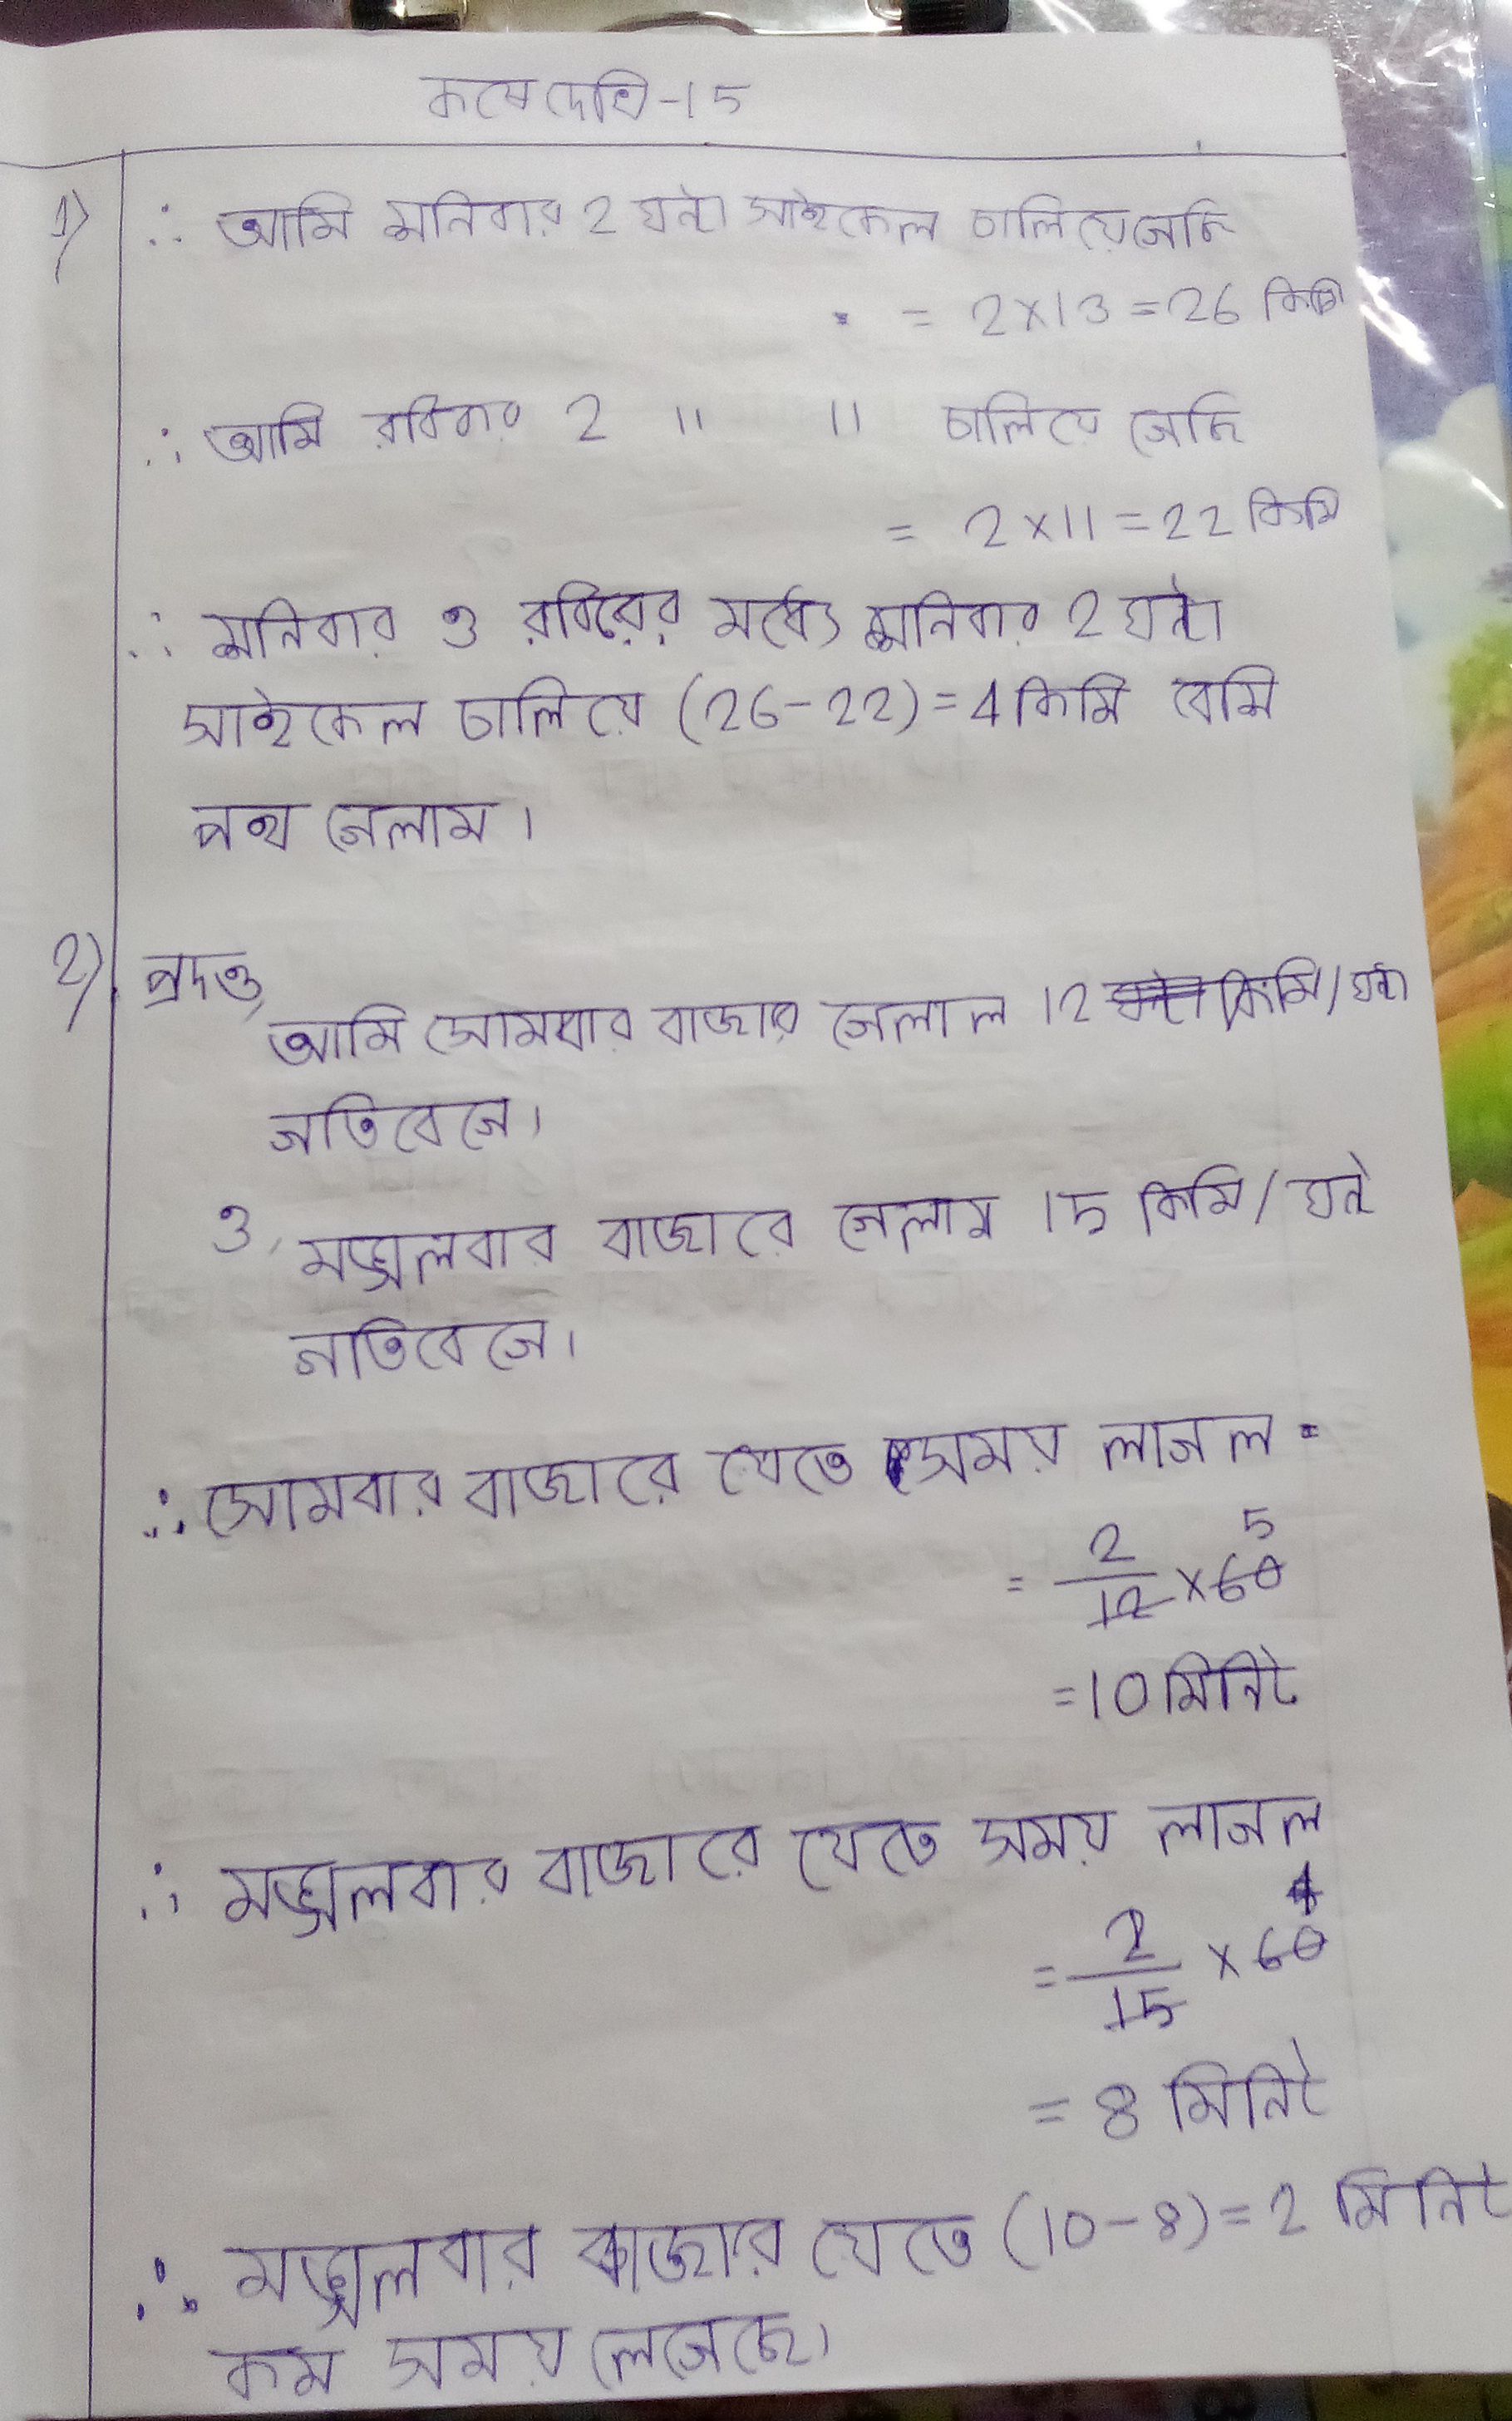 কষে দেখি-15
1) ∴ আমি শনিবার 2 ঘন্টা সাইকেল চালিয়ে গেছি
= 2×13 = 26 কিমি
∴ আমি রবিবার 2 " " চালিয়ে গেছি
= 2×11 = 22 কিমি
∴ শনিবার ও রবিবারের মধ্যে শনিবার 2 ঘন্টা
সাইকেল চালিয়ে (26-22) = 4 কিমি বেশি
পথ গেলাম।
2) প্রদত্ত,
আমি সোমবার বাজার গেলাল 12 কিমি/ঘন্টা
গতিবেগে।
ও, মঙ্গলবার বাজারে গেলাম 15 কিমি/ঘন্টা
গতিবেগে।
∴ সোমবার বাজারে যেতে সময় লাগল
= 2/12 × 60 5
= 10 মিনিট
∴ মঙ্গলবার বাজারে যেতে সময় লাগল
= 2/15 × 60 4
= 8 মিনিট
∴ মঙ্গলবার বাজার যেতে (10-8) = 2 মিনিট
কম সময় লেগেছে।